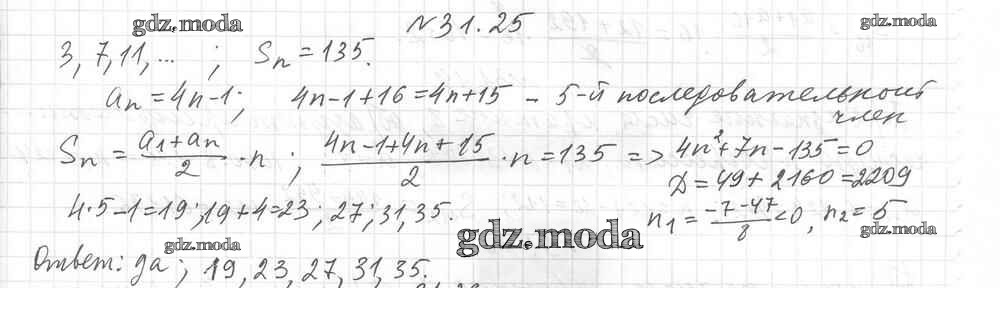 gdz.moda
№31.25
gdz.moda
3, 7, 11, ... ; Sn = 135.
an = 4n-1; 4n-1+16 = 4n+15 - 5-й последовательност
член
Sn = (a1+an)/2 · n ; (4n-1+4n+15)/2 · n = 135 => 4n²+7n-135=0
D = 49+2160=2209
4·5-1=19; 19+4=23; 27; 31, 35. n1 = (-7-47)/8 <0, n2 = 5.
gdz.moda
gdz.moda
gdz.moda
Ответ: да; 19, 23, 27, 31, 35.